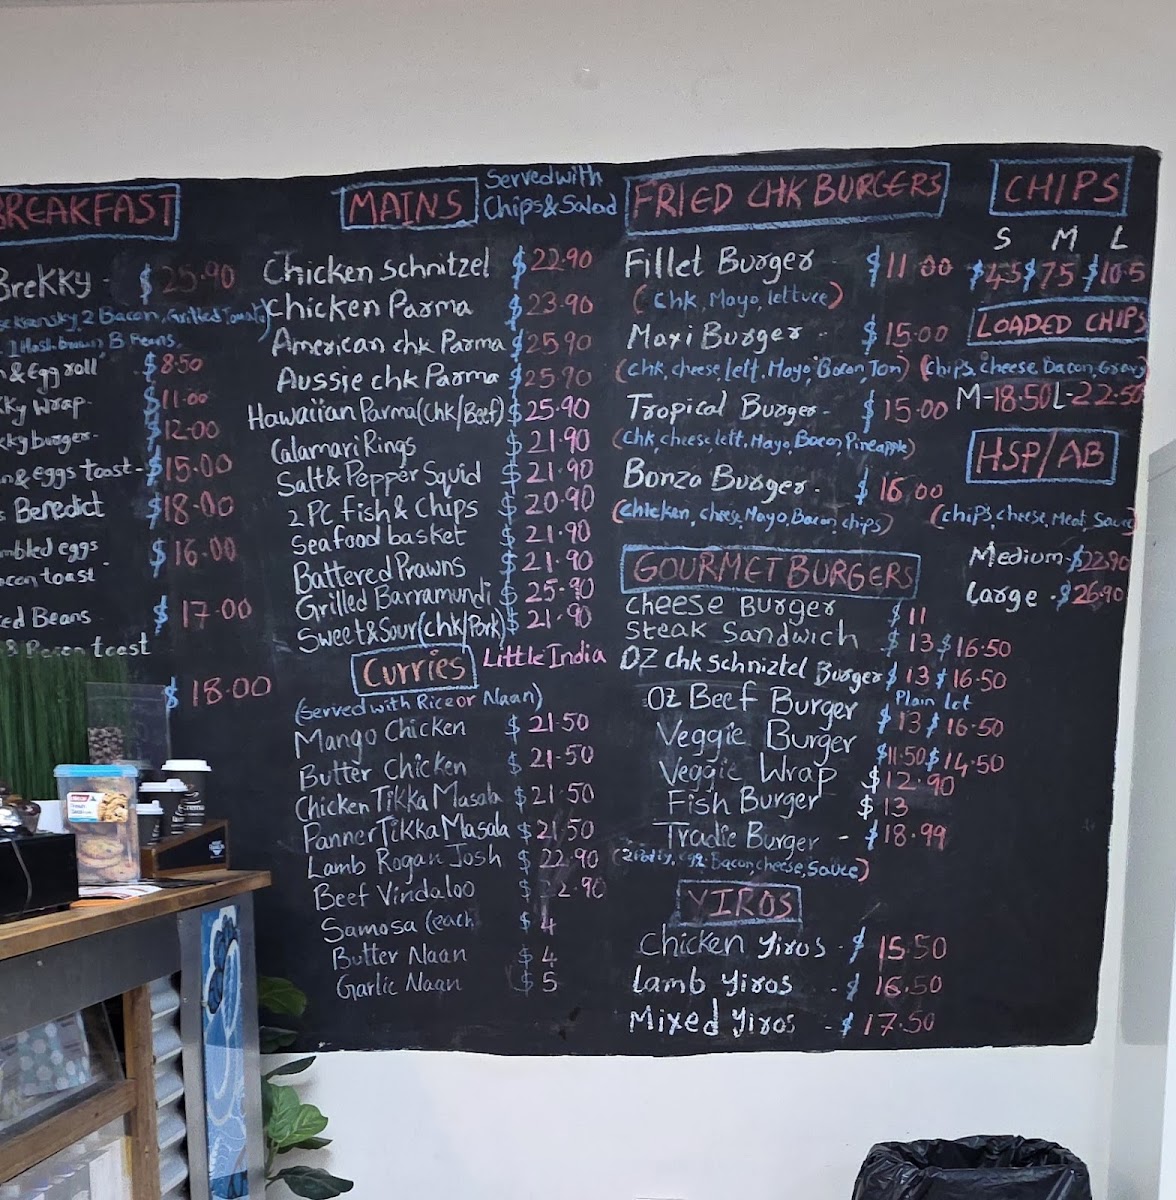 BREAKFAST
BreKKy - $25.90
2 Bacon, Grilled Tomato)
B Beans
& Egg roll $8.50
Wrap - $11.00
burger - $12.00
& eggs toast - $15.00
Benedict $18.00
eggs $16.00
toast
Beans $17.00
& Bacon toast
$18.00
MAINS Served with
Chips & Salad
Chicken Schnitzel $22.90
Chicken Parma $23.90
American chk Parma $25.90
Aussie chk Parma $25.90
Hawaiian Parma (Chk/Beef) $25.90
Calamari Rings $21.90
Salt & Pepper Squid $21.90
2 PC Fish & Chips $20.90
Seafood basket $21.90
Battered Prawns $21.90
Grilled Barramundi $25.90
Sweet & Sour (Chk/Pork) $21.90
Curries Little India
(Served with Rice or Naan)
Mango Chicken $21.50
Butter Chicken $21.50
Chicken Tikka Masala $21.50
Panner Tikka Masala $21.50
Lamb Rogan Josh $22.90
Beef Vindaloo $22.90
Samosa (each $4
Butter Naan $4
Garlic Naan $5
FRIED CHK BURGERS
Fillet Burger - $11.00
(Chk, Mayo, lettuce)
Maxi Burger - $15.00
(chk, cheese, lett, Mayo, Bacon, Tom)
Tropical Burger - $15.00
(chk, cheese, lett, Mayo, Bacon, Pineapple)
Bonza Burger - $16.00
(Chicken, cheese, Mayo, Bacon, chips)
GOURMET BURGERS
Cheese Burger $11
Steak Sandwich $13 $16.50
OZ chk schniztel Burger $13 $16.50
Plain Lot
Oz Beef Burger $13 $16.50
Veggie Burger $11.50 $14.50
Veggie Wrap $12.90
Fish Burger $13
Tradie Burger - $18.99
(2 Patty, egg, Bacon, cheese, Sauce)
YIROS
Chicken Yiros - $15.50
Lamb Yiros - $16.50
Mixed Yiros - $17.50
CHIPS
S M L
$4.5 $7.5 $10.5
LOADED CHIPS
(chips, cheese, Bacon, Gravy)
M-18.50 L-22.50
HSP/AB
(chips, cheese, Meat, Sauce)
Medium - $22.90
Large - $26.90